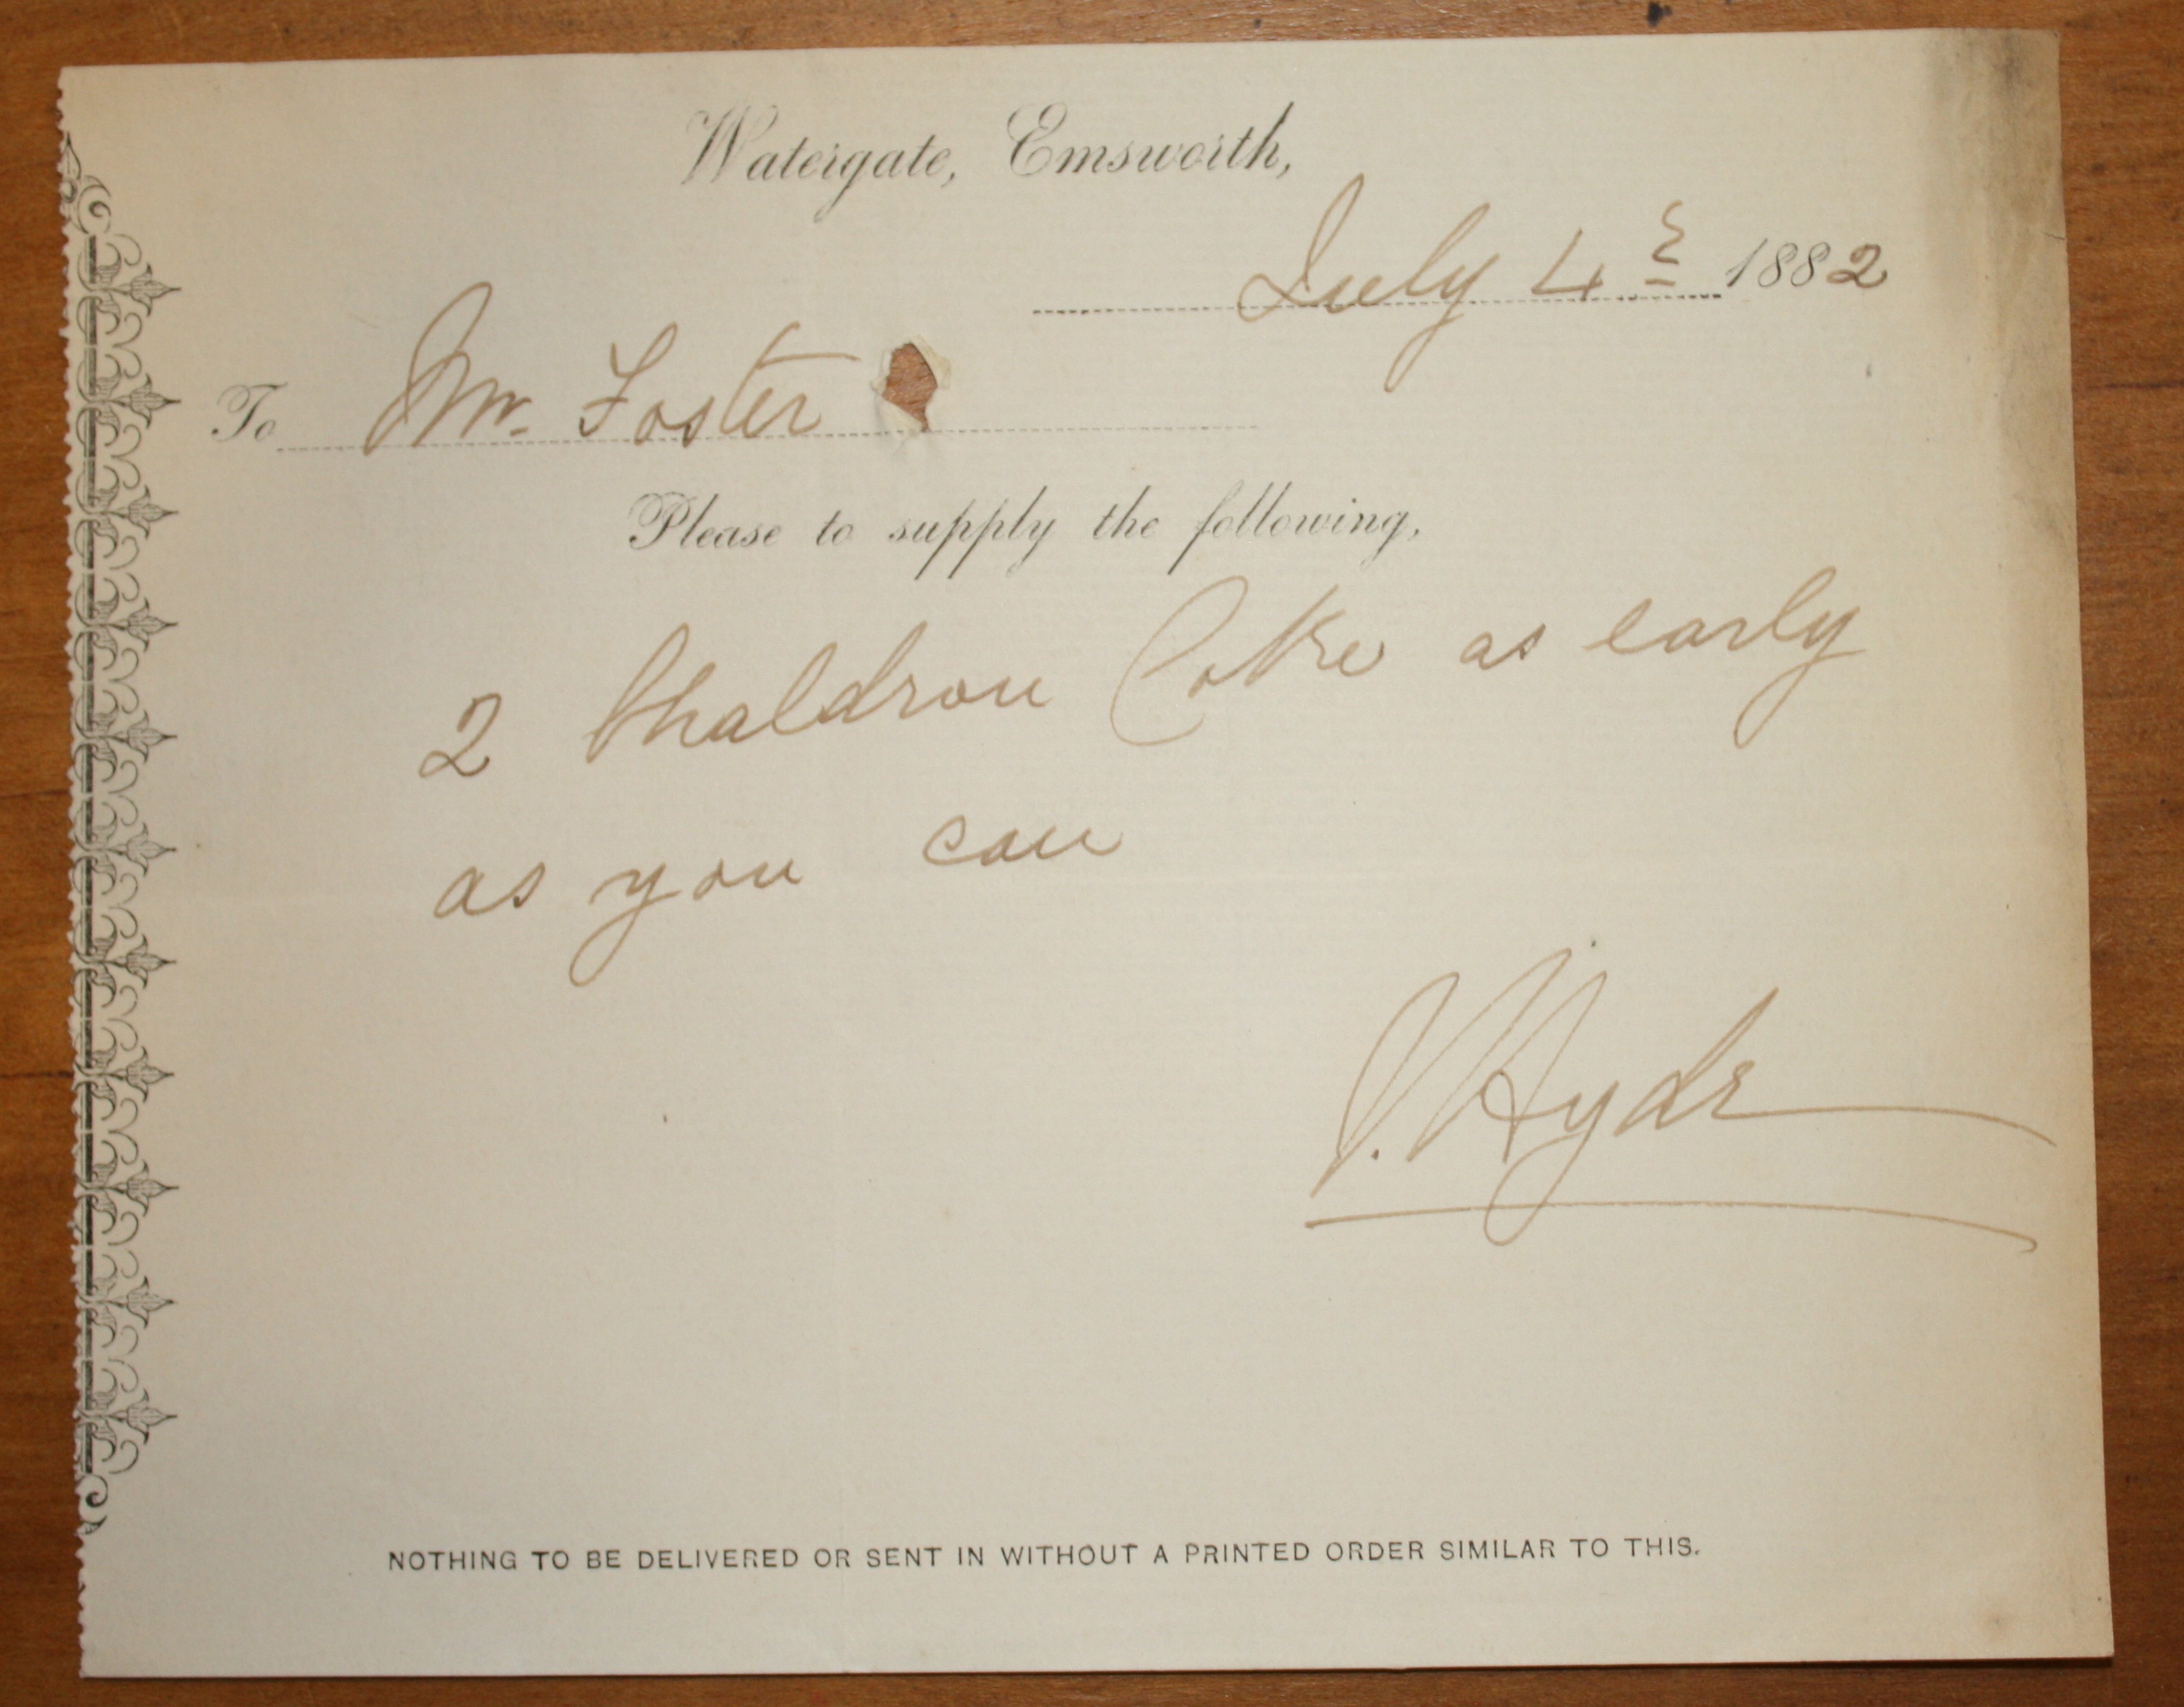 Watergate, Emsworth,
July 4th 1882
To Mr. Foster
Please to supply the following,
2 Chaldron Coke as early
as you can
J. Hyde
NOTHING TO BE DELIVERED OR SENT IN WITHOUT A PRINTED ORDER SIMILAR TO THIS.